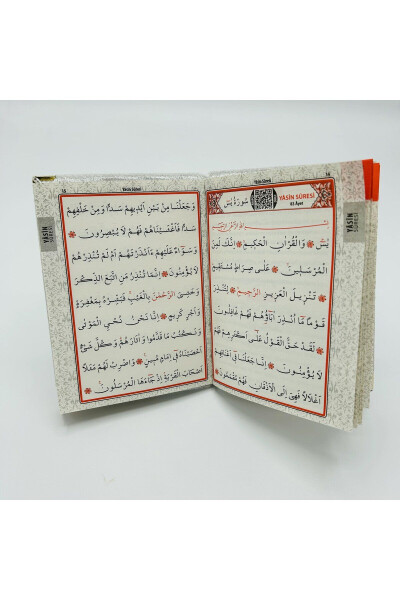 Yâsîn Sûresi
14
YÂSÎN SÛRESİ
83 Âyet
سُورَةُ يٰسٓ
YÂSÎN
SÛRESİ
يٰسٓ ۞ وَالْقُرْاٰنِ الْحَكٖيمِ ۞ اِنَّكَ لَمِنَ
الْمُرْسَلٖينَ ۞ عَلٰى صِرَاطٍ مُسْتَقٖيمٍ
۞ تَنْزٖيلَ الْعَزٖيزِ الرَّحٖيمِ ۞ لِتُنْذِرَ
قَوْمًا مَٓا اُنْذِرَ اٰبَٓاؤُهُمْ فَهُمْ غَافِلُونَ
۞ لَقَدْ حَقَّ الْقَوْلُ عَلٰٓى اَكْثَرِهِمْ فَهُمْ
لَا يُؤْمِنُونَ ۞ اِنَّا جَعَلْنَا فٖٓى اَعْنَاقِهِمْ
اَغْلَالًا فَهِىَ اِلَى الْاَذْقَانِ فَهُمْ مُقْمَحُونَ ۞
Yâsîn Sûresi
وَجَعَلْنَا مِنْ بَيْنِ اَيْدٖيهِمْ سَدًّا وَمِنْ خَلْفِهِمْ
سَدًّا فَاَغْشَيْنَاهُمْ فَهُمْ لَا يُبْصِرُونَ ۞
وَسَوَٓاءٌ عَلَيْهِمْ ءَاَنْذَرْتَهُمْ اَمْ لَمْ تُنْذِرْهُمْ
لَا يُؤْمِنُونَ ۞ اِنَّمَا تُنْذِرُ مَنِ اتَّبَعَ الذِّكْرَ
وَخَشِىَ الرَّحْمٰنَ بِالْغَيْبِ فَبَشِّرْهُ بِمَغْفِرَةٍ
وَاَجْرٍ كَرٖيمٍ ۞ اِنَّا نَحْنُ نُحْيِ الْمَوْتٰى
وَنَكْتُبُ مَا قَدَّمُوا وَاٰثَارَهُمْ وَكُلَّ شَىْءٍ
اَحْصَيْنَاهُ فٖٓى اِمَامٍ مُبٖينٍ ۞ وَاضْرِبْ لَهُمْ مَثَلًا
اَصْحَابَ الْقَرْيَةِ اِذْ جَٓاءَهَا الْمُرْسَلُونَ ۞